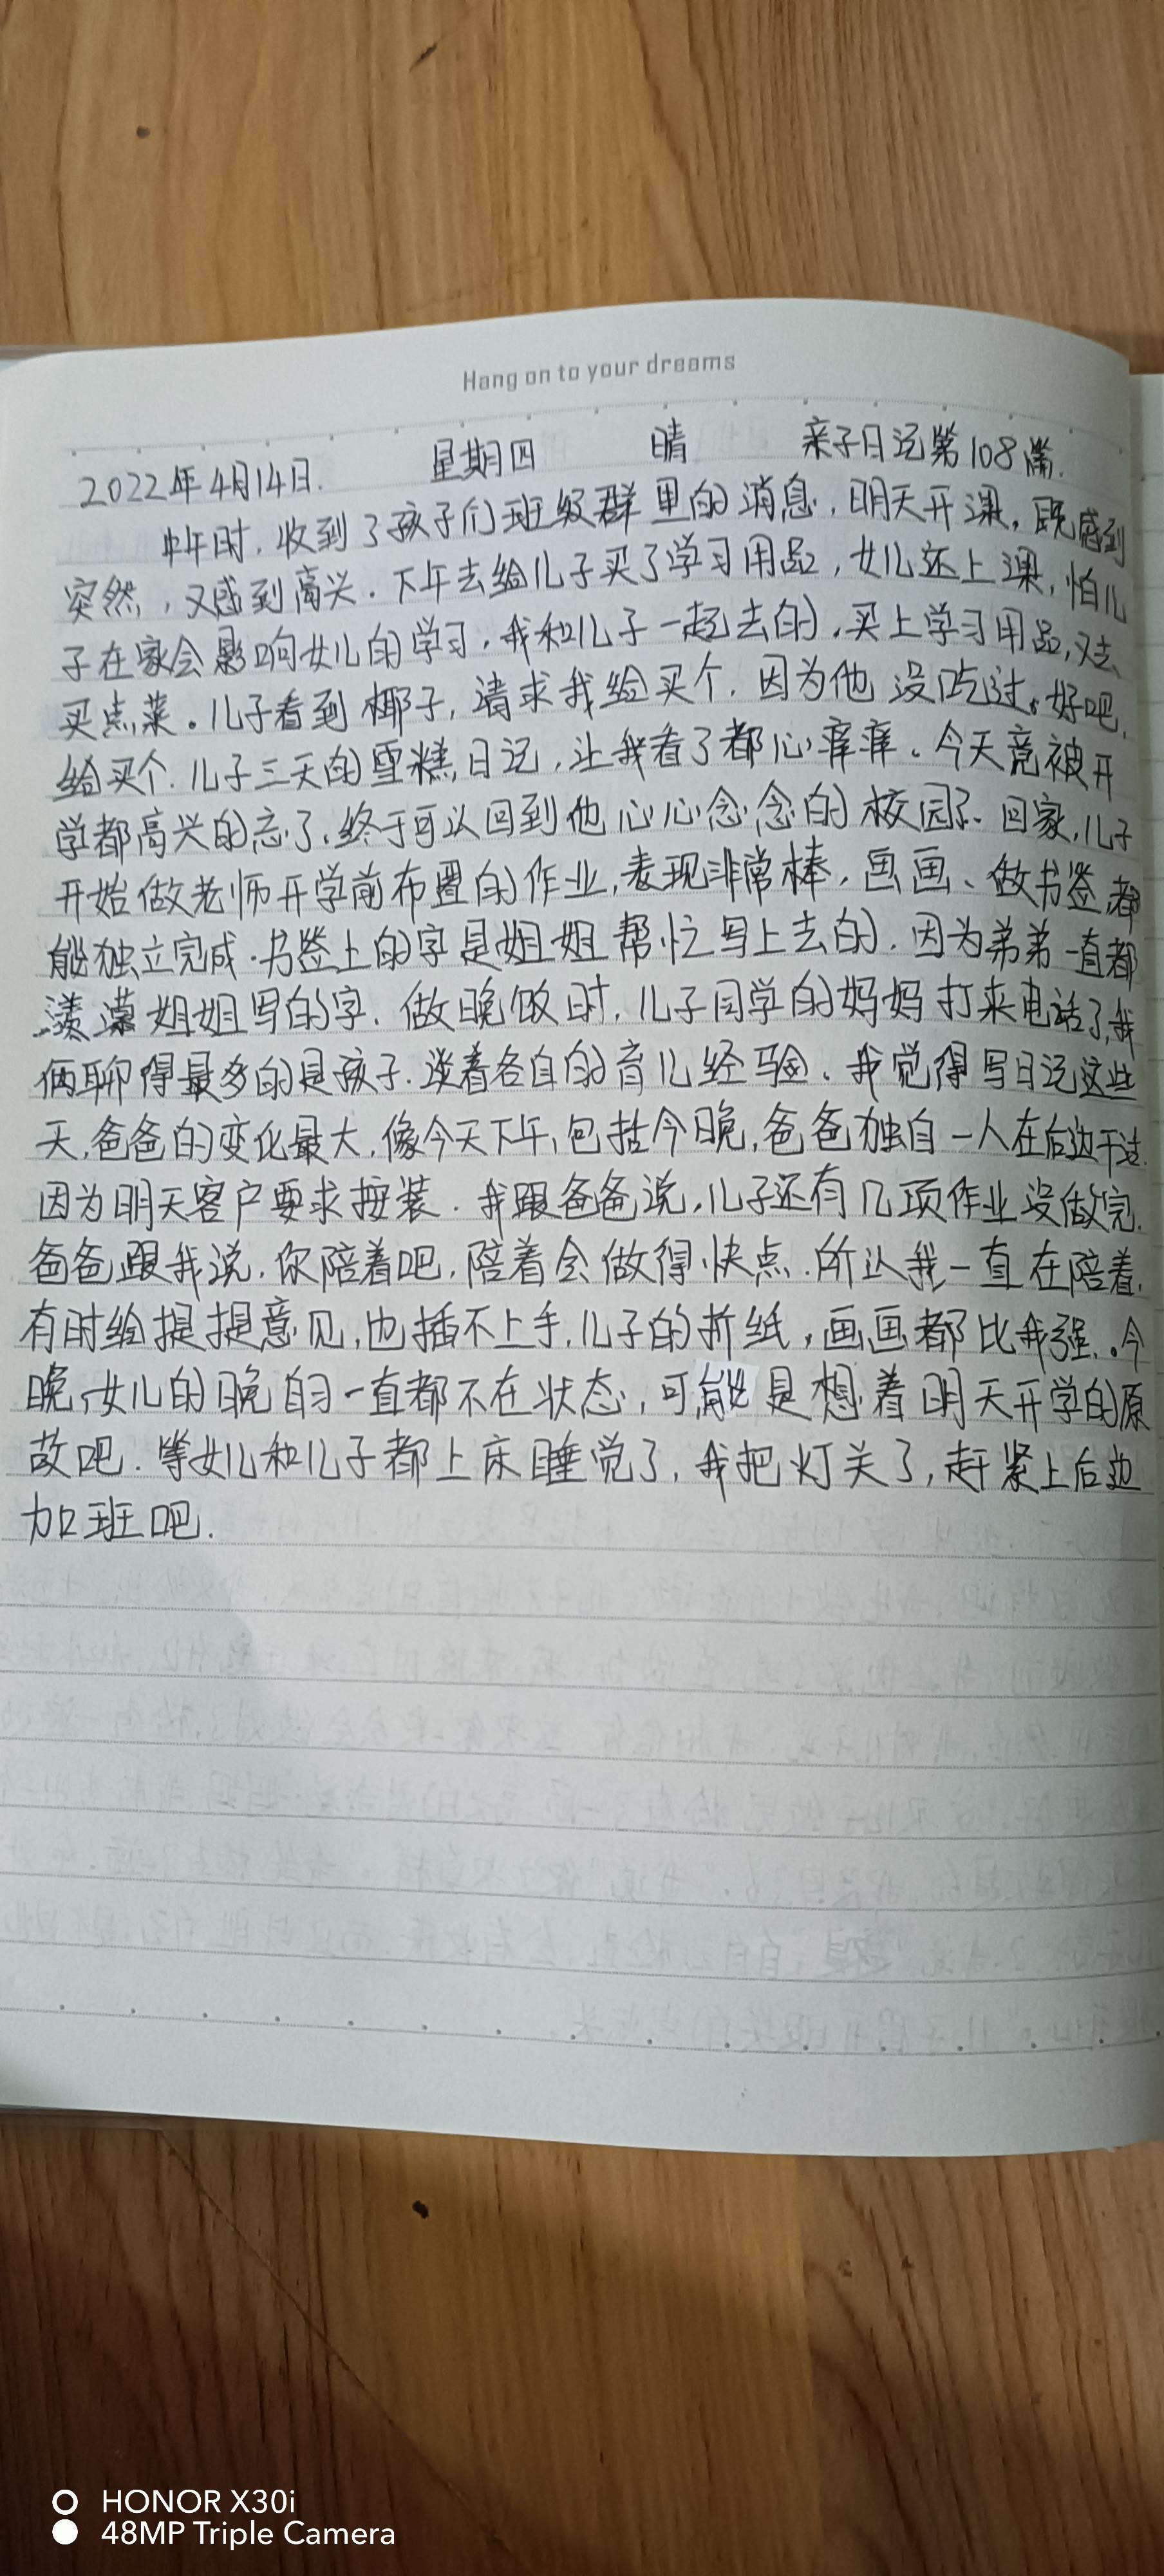 Hang on to your dreams
2022年4月14日. 星期四 晴 亲子日记第108篇.
中午时,收到了孩子们班级群里的消息,明天开课,既感到
突然,又感到高兴.下午去给儿子买了学习用品,女儿还上课,怕儿
子在家会影响女儿的学习,我和儿子一起去的,买上学习用品,又去
买点菜。儿子看到椰子,请求我给买个,因为他没吃过。好吧,
给买个.儿子三天的雪糕日记,让我看了都心痒痒。今天竟被开
学都高兴的忘了,终于可以回到他心心念念的校园了.回家,儿子
开始做老师开学前布置的作业,表现非常棒,画画、做书签都
能独立完成.书签上的字是姐姐帮忙写上去的.因为弟弟一直都
羡慕姐姐写的字.做晚饭时,儿子同学的妈妈打来电话了,我
俩聊得最多的是孩子.谈着各自的育儿经验.我觉得写日记这些
天,爸爸的变化最大,像今天下午,包括今晚,爸爸独自一人在后边干活.
因为明天客户要求按装.我跟爸爸说,儿子还有几项作业没做完.
爸爸跟我说,你陪着吧,陪着会做得快点.所以我一直在陪着,
有时给提提意见,也插不上手,儿子的折纸,画画都比我强.。今
晚,女儿的晚自习一直都不在状态,可能是想着明天开学的原
故吧.等女儿和儿子都上床睡觉了,我把灯关了,赶紧上后边
加班吧.
HONOR X30i
48MP Triple Camera